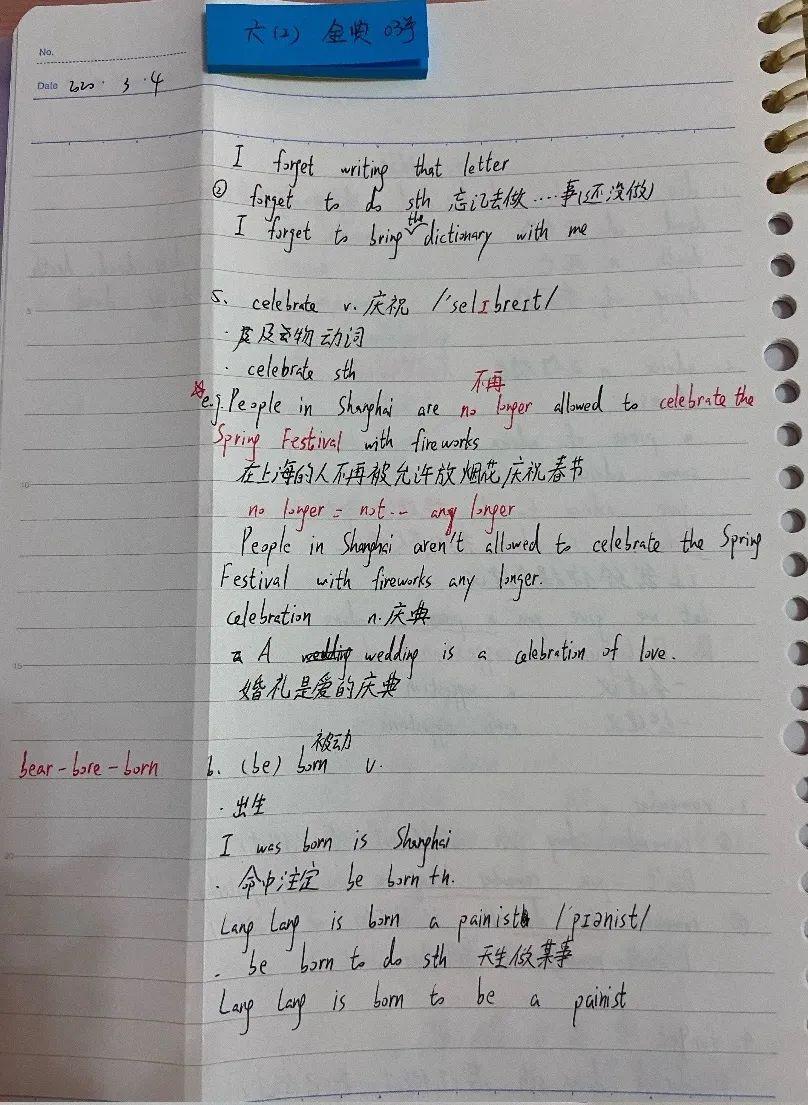 六(2) 金奕 03号
No.
Date 2020. 3. 4
I forget writing that letter
② forget to do sth 忘记去做....事(还没做)
I forget to bring the dictionary with me
5. celebrate v. 庆祝 /'selɪbreɪt/
· 及物动词
· celebrate sth
不再
e.g. People in Shanghai are no longer allowed to celebrate the
Spring Festival with fireworks
在上海的人不再被允许放烟花庆祝春节
no longer = not -- any longer
People in Shanghai aren't allowed to celebrate the Spring
Festival with fireworks any longer.
celebration n. 庆典
A wedding is a celebration of love.
婚礼是爱的庆典
被动
bear - bore - born
6. (be) born v.
· 出生
I was born is Shanghai
· 命中注定 be born th.
Lang Lang is born a painist /'pɪənist/
· be born to do sth 天生做某事
Lang Lang is born to be a painist